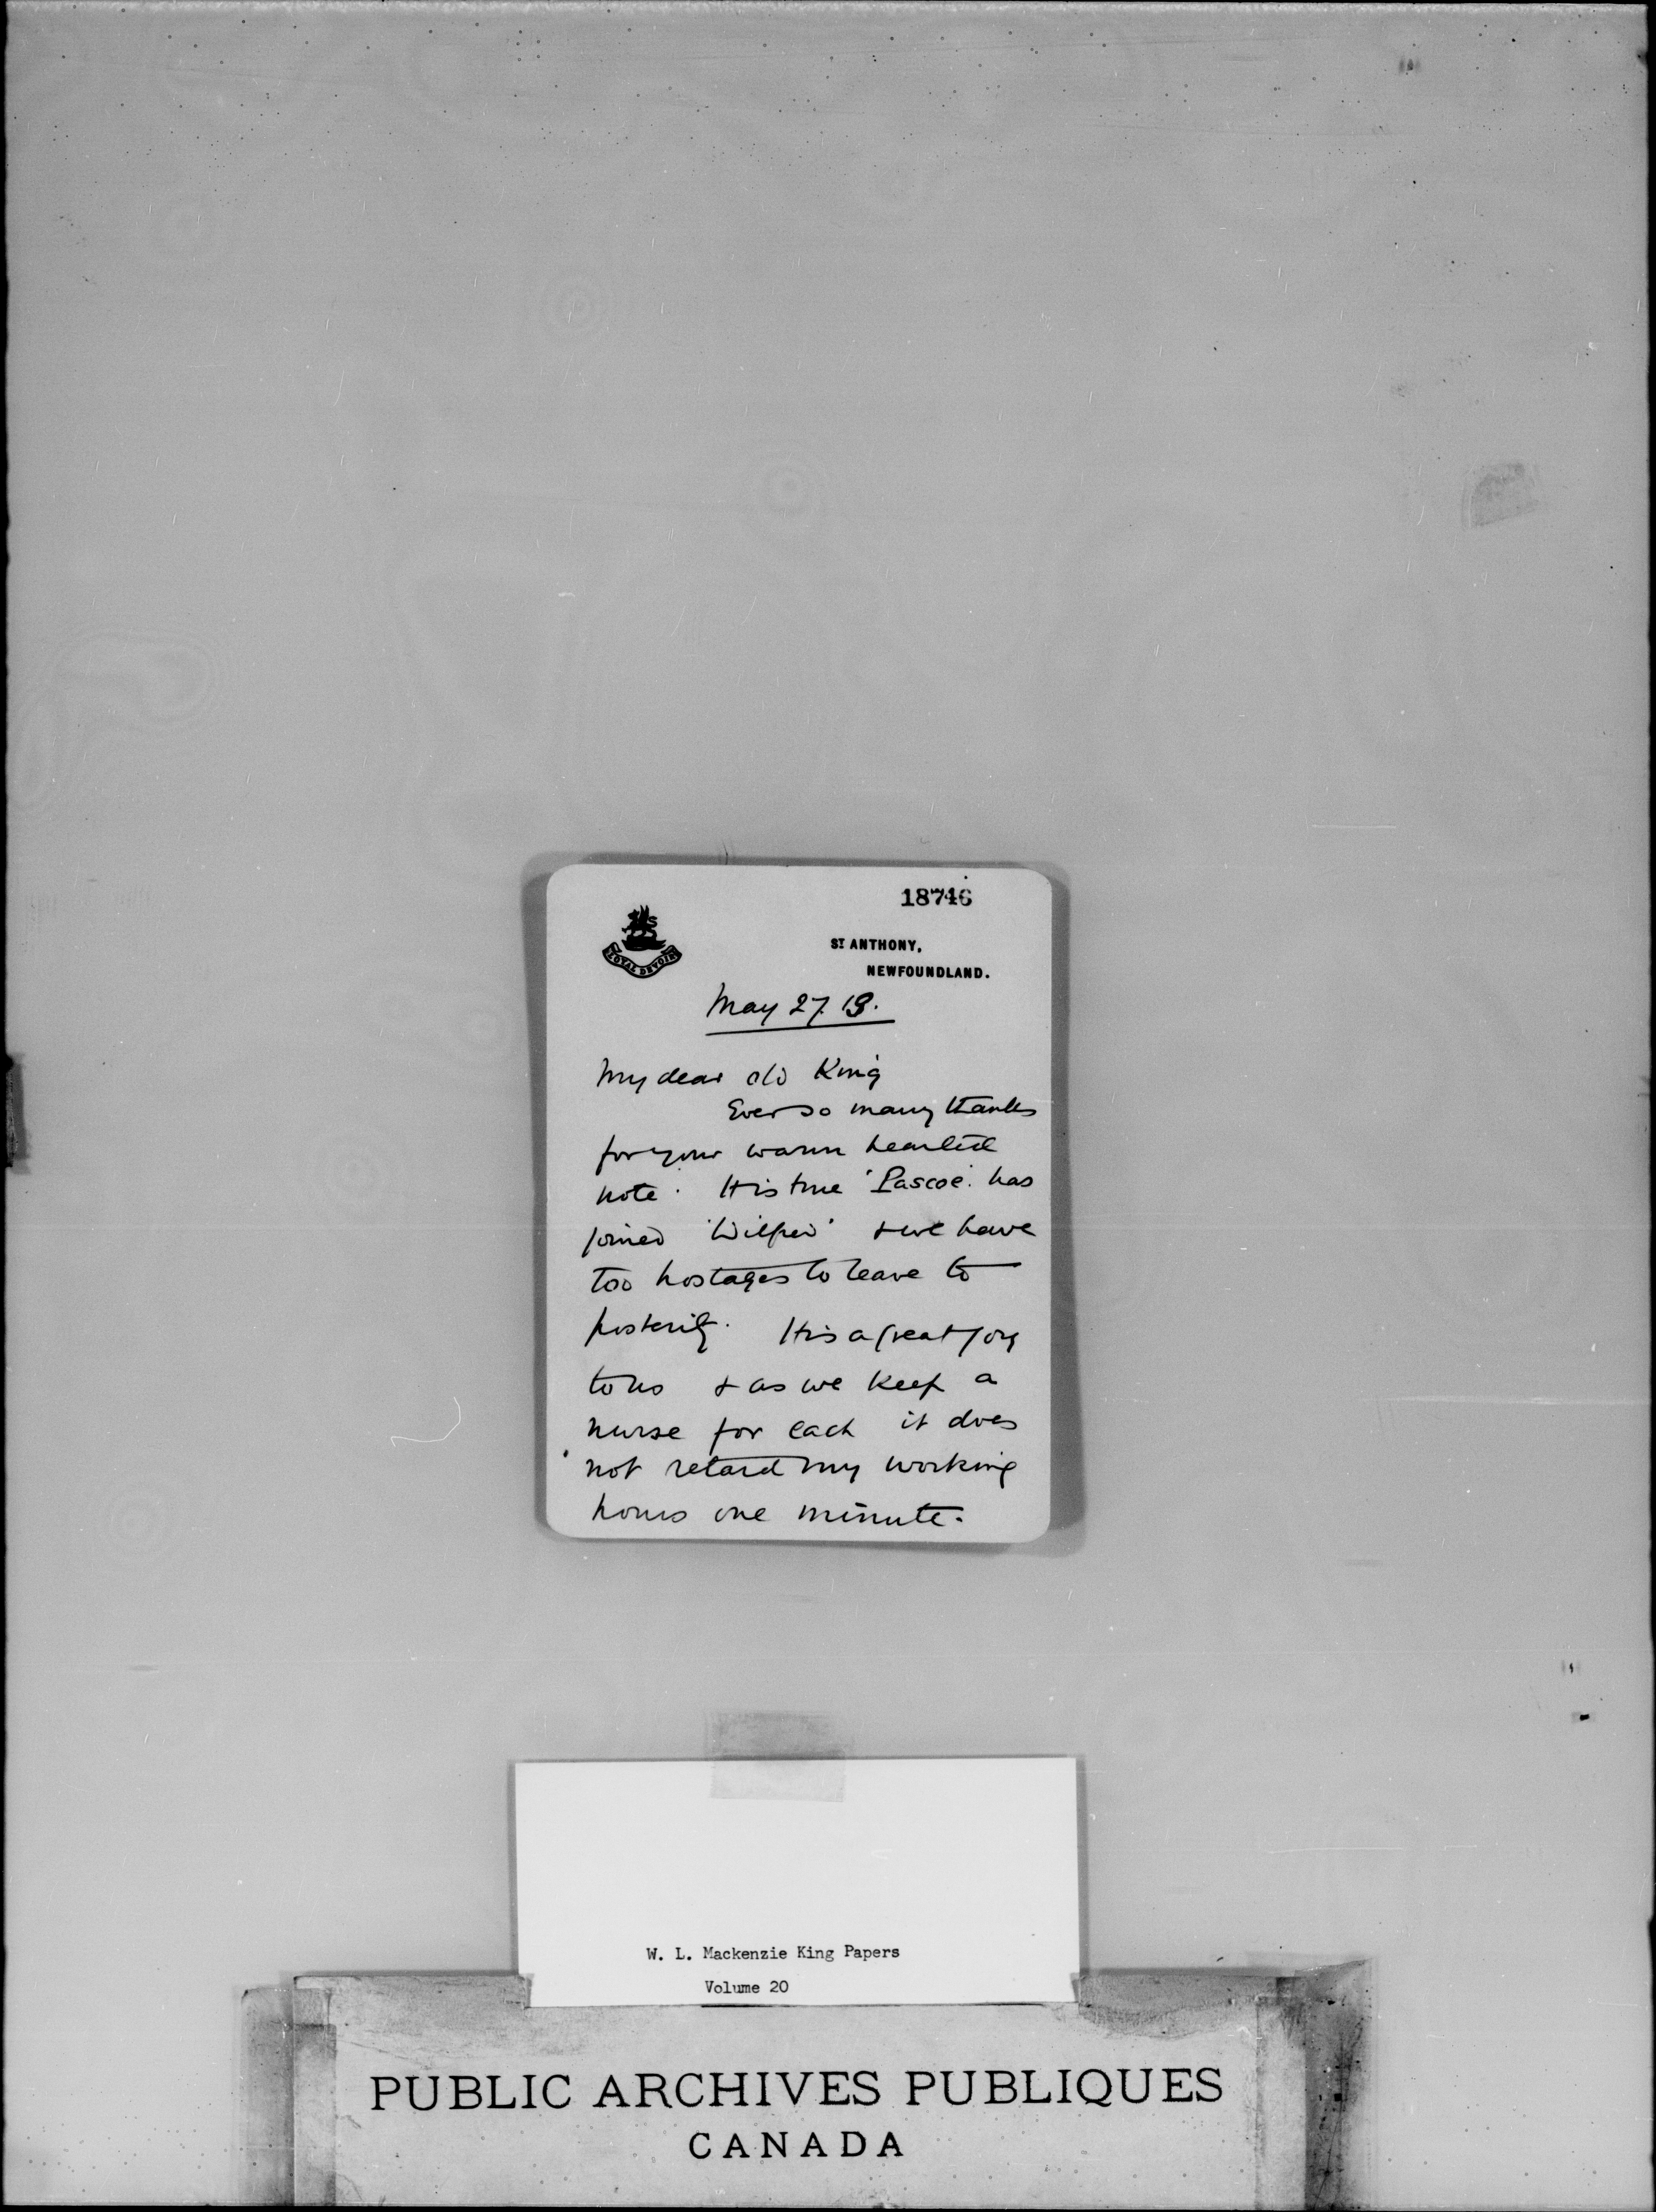 18746
ST ANTHONY,
NEWFOUNDLAND.
LOYAL DEVOIR
May 27. 13.
My dear old King
Ever so many thanks
for your warm hearted
note. It is true 'Pascoe' has
joined 'Wilfred' & we have
too hostages to leave to
posterity. It is a great joy
to us & as we keep a
nurse for each it does
not retard my working
hours one minute.
W. L. Mackenzie King Papers
Volume 20
PUBLIC ARCHIVES PUBLIQUES
CANADA